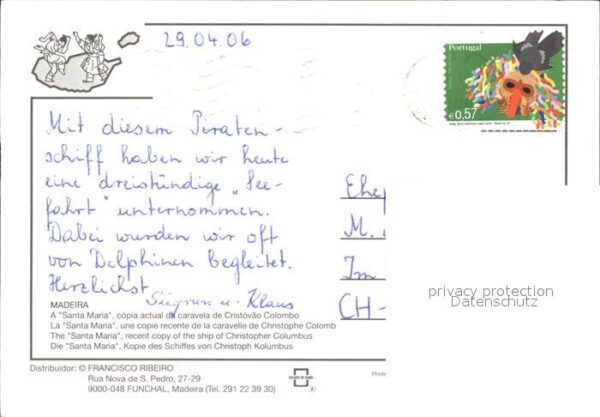 29.04.06
Portugal
€0,57
Mit diesem Piraten-
schiff haben wir heute
eine dreistündige "See-
fahrt" unternommen.
Dabei wurden wir oft
von Delphinen begleitet.
Herzlichst
Siegrun u. Klaus
Ehe
M.
Im
CH-
privacy protection
Datenschutz
MADEIRA
A "Santa Maria", cópia actual da caravela de Cristóvão Colombo
La "Santa Maria", une copie recente de la caravelle de Christophe Colomb
The "Santa Maria", recent copy of the ship of Christopher Columbus
Die "Santa Maria", Kopie des Schiffes von Christoph Kolumbus
Distribuidor: © FRANCISCO RIBEIRO
Rua Nova de S. Pedro, 27-29
9000-048 FUNCHAL, Madeira (Tel. 291 22 39 30)
Printe